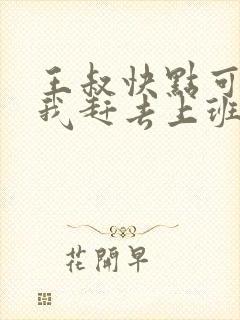 王叔快點可
我赶去上班
花開早